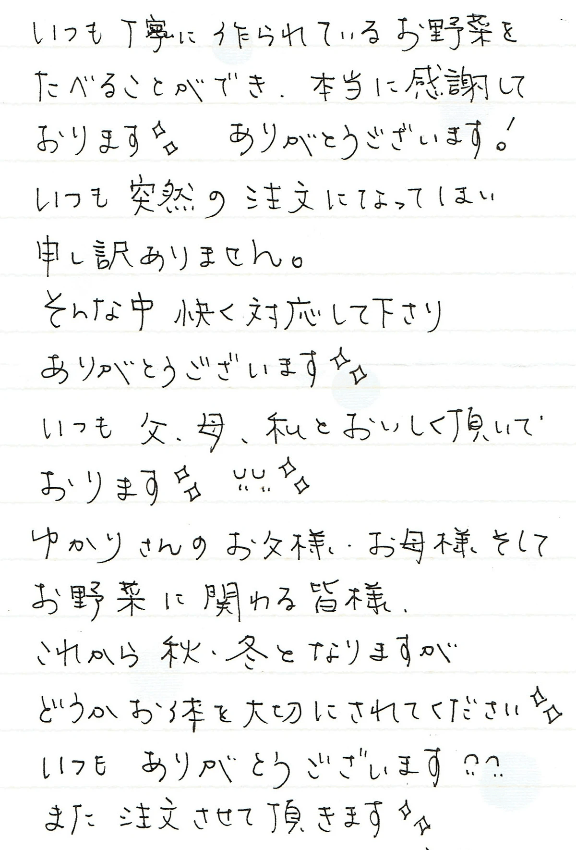 いつも丁寧に作られているお野菜を
たべることができ、本当に感謝して
おります✨ ありがとうございます!
いつも突然の注文になってしまい
申し訳ありません。
そんな中 快く対応して下さり
ありがとうございます✨
いつも父、母、私とおいしく頂いて
おります✨ ✨
ゆかりさんのお父様、お母様、そして
お野菜に関わる皆様、
これから秋・冬となりますが
どうかお体を大切にされてください✨
いつも ありがとうございます
また 注文させて頂きます✨